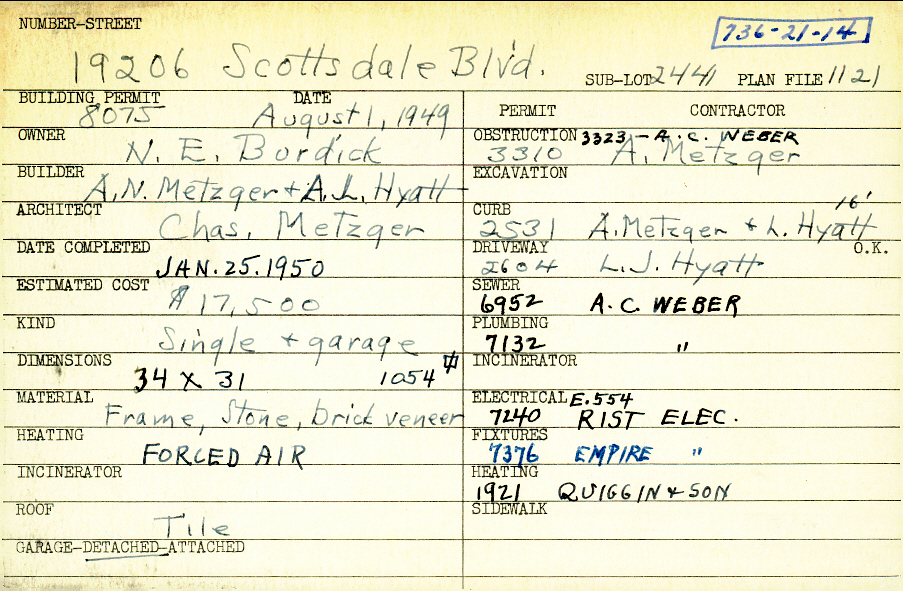 NUMBER-STREET
736-21-14
19206 Scottsdale Blvd.
SUB-LOT 2441 PLAN FILE 1121
BUILDING PERMIT DATE
8075 August 1, 1949
OWNER
N. E. Burdick
BUILDER
A.N. Metzger + A.L. Hyatt
ARCHITECT
Chas. Metzger
DATE COMPLETED
JAN. 25. 1950
ESTIMATED COST
$17,500
KIND
Single + garage
DIMENSIONS
34 X 31 1054 #
MATERIAL
Frame, Stone, brick veneer
HEATING
FORCED AIR
INCINERATOR
ROOF
Tile
GARAGE-DETACHED-ATTACHED
PERMIT CONTRACTOR
OBSTRUCTION 3323 - A. C. WEBER
3310 A. Metzger
EXCAVATION
16'
CURB
2531 A. Metzger + L. Hyatt
DRIVEWAY O.K.
2604 L. J. Hyatt
SEWER
6952 A. C. WEBER
PLUMBING
7132 "
INCINERATOR
ELECTRICAL E.554
7240 RIST ELEC.
FIXTURES
7376 EMPIRE "
HEATING
1921 QUIGGIN + SON
SIDEWALK